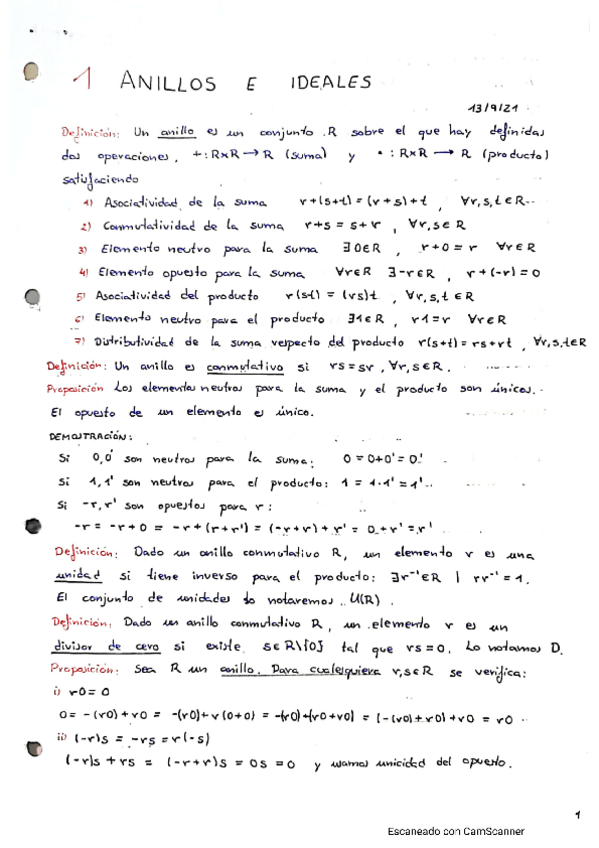 1 ANILLOS E IDEALES
13/9/21
Definición: Un anillo es un conjunto R sobre el que hay definidas
dos operaciones, + : R×R → R (suma) y • : R×R → R (producto)
satisfaciendo
1) Asociatividad de la suma r+(s+t) = (r+s)+t , ∀r,s,t ∈ R
2) Conmutatividad de la suma r+s = s+r , ∀r,s ∈ R
3) Elemento neutro para la suma ∃0∈R , r+0 = r ∀r∈R
4) Elemento opuesto para la suma ∀r∈R ∃-r∈R , r+(-r) = 0
5) Asociatividad del producto r(st) = (rs)t , ∀r,s,t ∈ R
6) Elemento neutro para el producto ∃1∈R , r1 = r ∀r∈R
7) Distributividad de la suma respecto del producto r(s+t) = rs+rt , ∀r,s,t∈R
Definición: Un anillo es conmutativo si rs = sr , ∀r,s∈R.
Proposición Los elementos neutros para la suma y el producto son únicos.
El opuesto de un elemento es único.
DEMOSTRACIÓN:
Si 0,0' son neutros para la suma: 0 = 0+0' = 0'
Si 1,1' son neutros para el producto: 1 = 1·1' = 1'
Si -r,r' son opuestos para r:
-r = -r+0 = -r+(r+r') = (-r+r)+r' = 0+r' = r'
Definición: Dado un anillo conmutativo R, un elemento r es una
unidad si tiene inverso para el producto: ∃r⁻¹∈R | rr⁻¹ = 1.
El conjunto de unidades lo notaremos U(R).
Definición: Dado un anillo conmutativo R, un elemento r es un
divisor de cero si existe s∈R\{0} tal que rs = 0. Lo notamos D.
Proposición: Sea R un anillo. Para cualesquiera r,s∈R se verifica:
i) r0 = 0
0 = -(r0)+r0 = -(r0)+r(0+0) = -(r0)+(r0+r0) = (-(r0)+r0)+r0 = r0
ii) (-r)s = -rs = r(-s)
(-r)s + rs = (-r+r)s = 0s = 0 y usamos unicidad del opuesto.
1
Escaneado con CamScanner